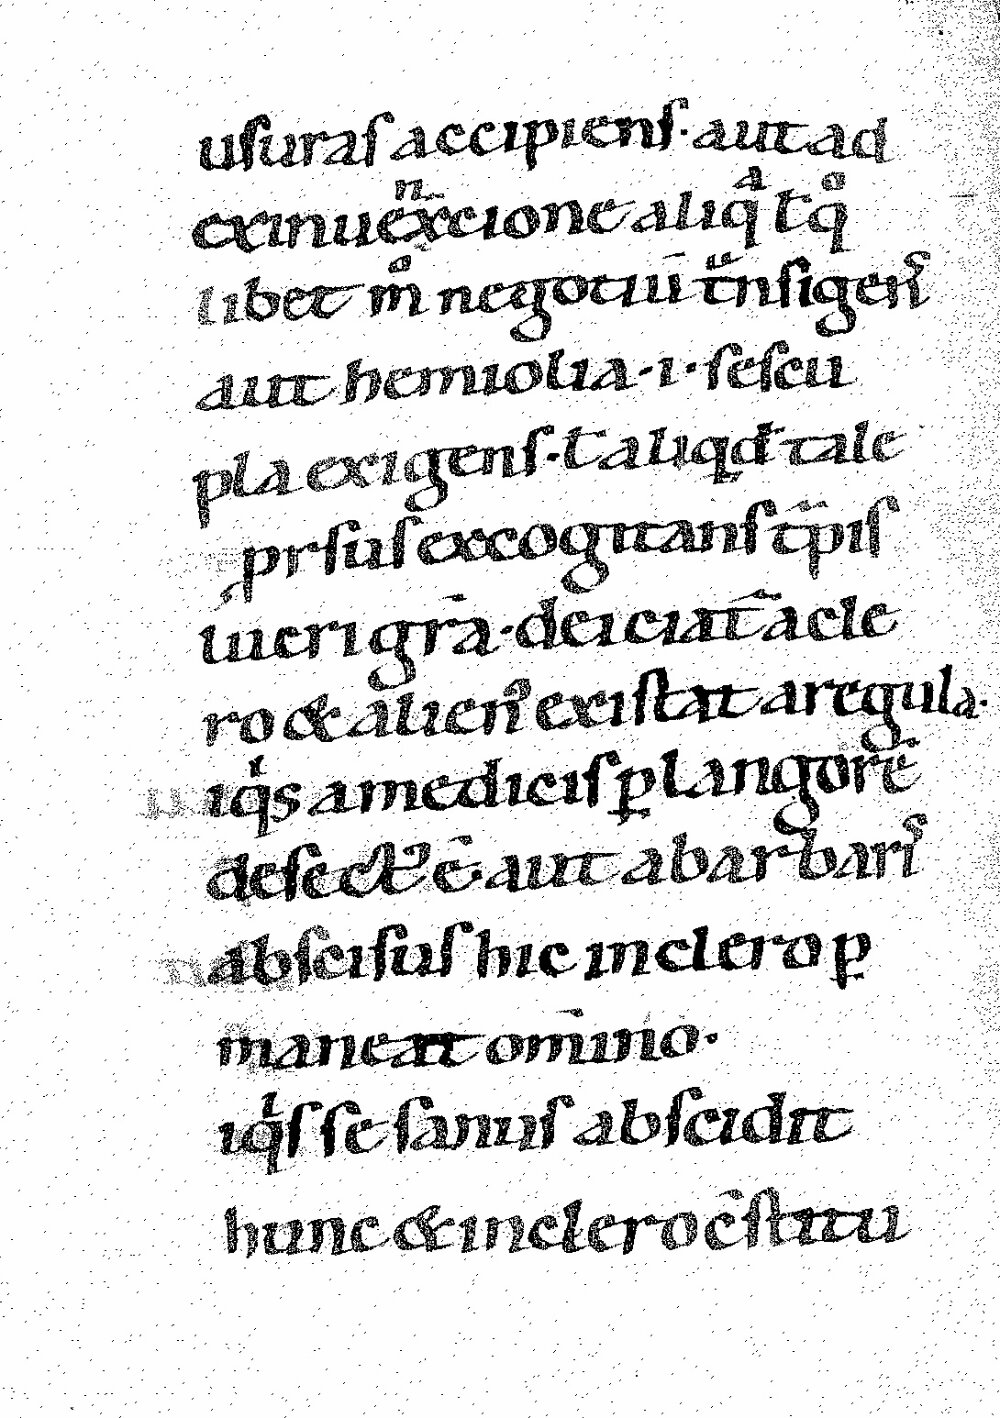 uſuraſ accipienſ· aut ad
exinuen̄xcione aliqͣ t̄ qͦ
libet mͦ negotiū tͣnſigenſ᷒
aut hemiolia·i·ſeſcu
pla exigenſ·t̄ aliqd̄ tale
prſuſ excogitanſ t̄piſ
lucri gr̄a·deiciat̄ a cle
ro & alien᷒ exiſtat a regula·
iqͥs a mediciſ ꝑ langorē
deſect᷒ ē· aut a barbariſ
abſciſuſ hic in clero ꝑ
maneat om̄ino·
iqͥſ ſe ſanuſ abſcidit
hunc & in clero c̄ſtitu